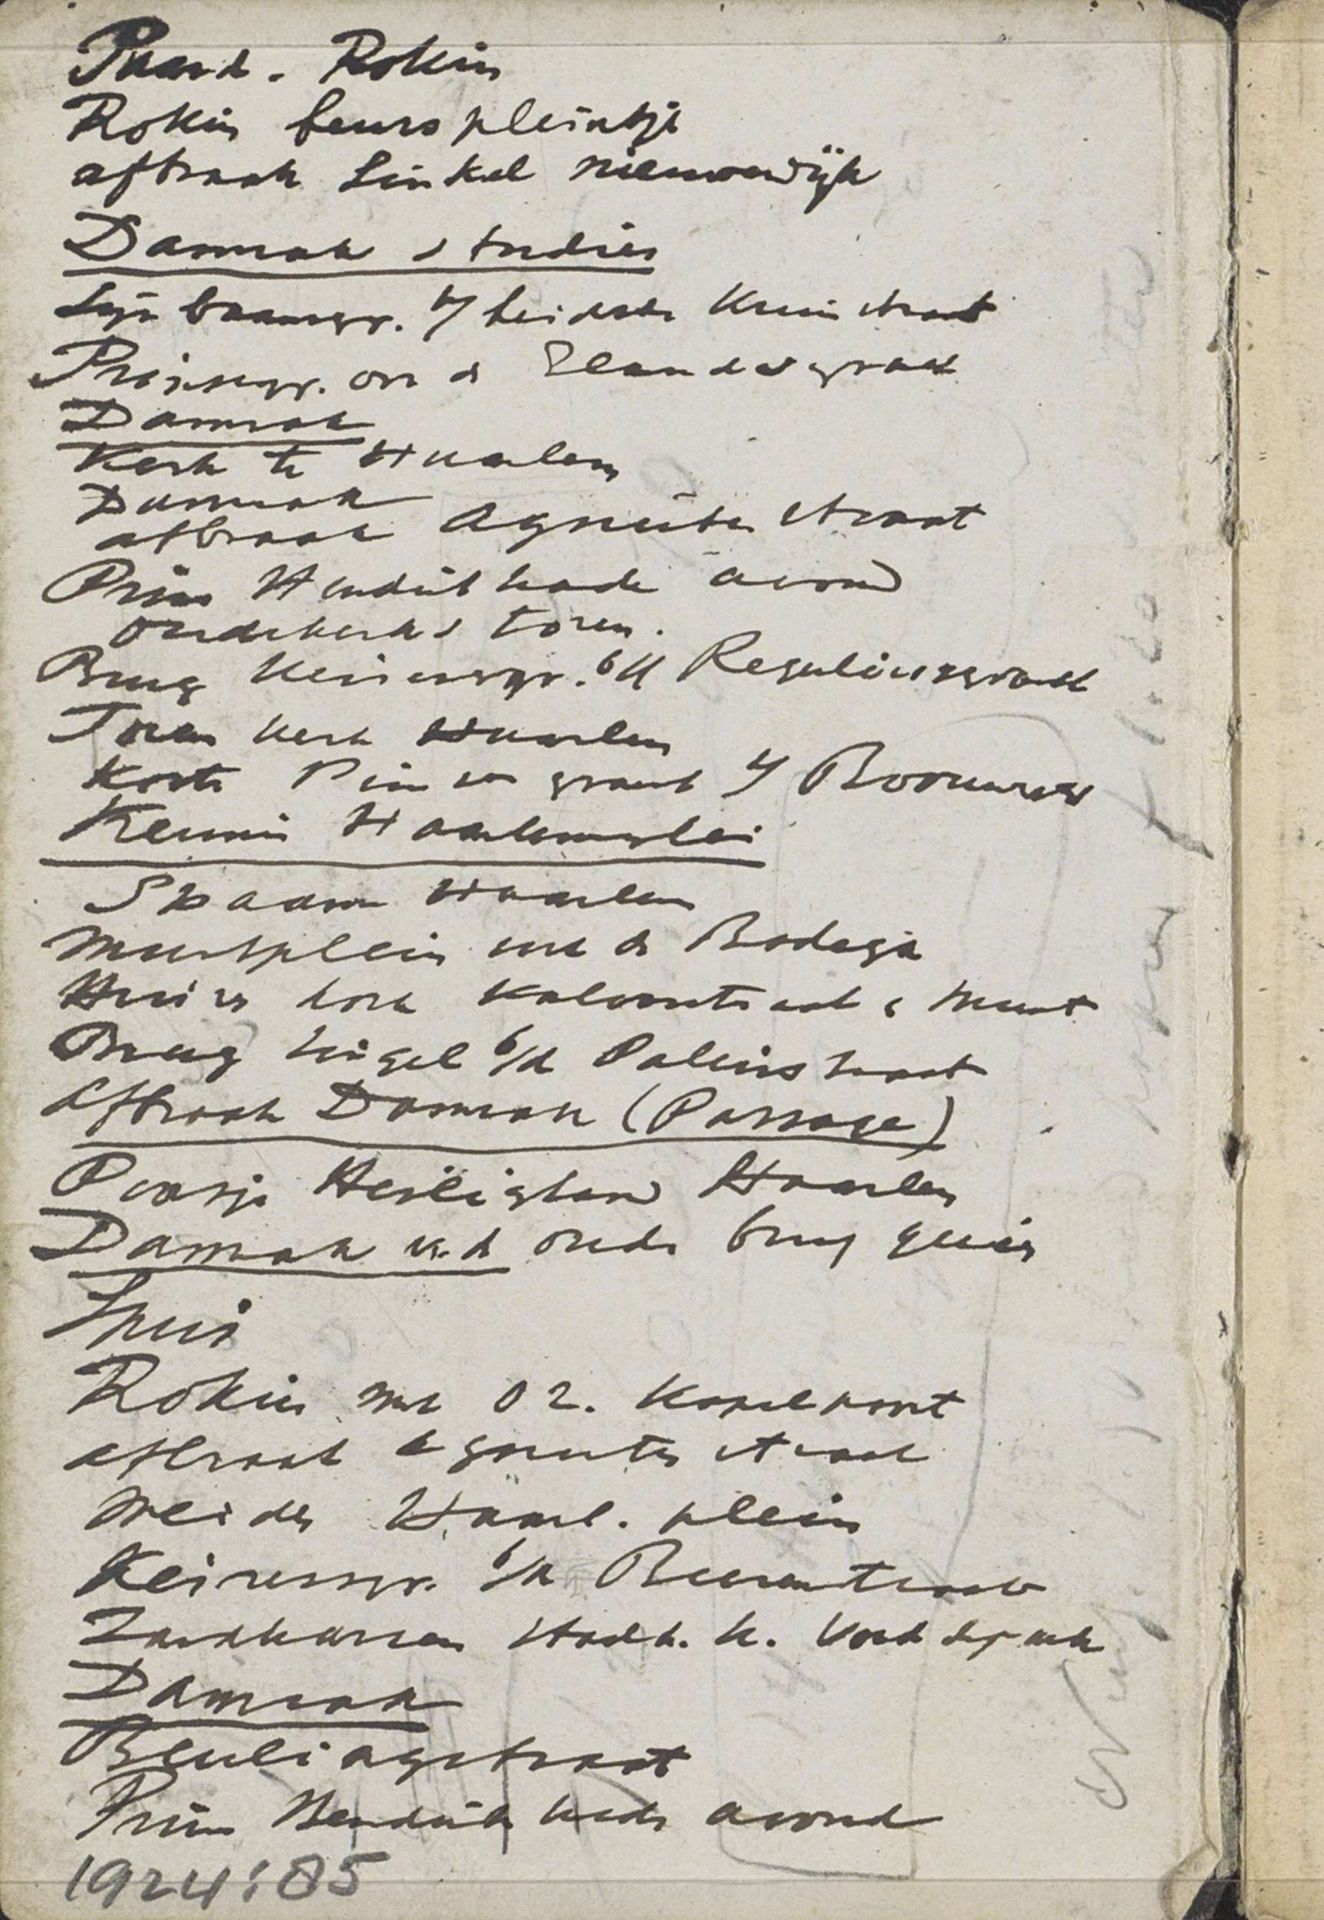 Paard. Rokin
Rokin beurspleintje
afbraak Sinkel nieuwendijk
Damrak studies
Lijnbaansgr. b/ Leidsche Kruisstraat
Prinsengr. on d Elandsgracht
Damrak
Kerk te Haarlem
Damrak
afbraak Agnietenstraat
Prins Hendrikkade avond
oudekerks toren.
Brug Keizersgr. b/d Reguliersgracht
Toren kerk Haarlem
Korte Prinsengracht b/ Brouwers
Kermis Haarlem
Spaarne Haarlem
Muntplein met de Bodega
Huizen hoek Kalverstraat & Munt
Brug Singel b/d Paleisstraat
Afbraak Damrak (Passage)
Poortje Heiligland Haarlem
Damrak v.d oude brug gezien
Spui
Rokin met O Z. Kapelpoort
afbraak Agnietenstraat
Meiden Haarl. plein
Keizersgr. b/d Beerenstraat
Zandkarren Stadh. k. Vondelpark
Damrak
Beulingstraat
Prins Hendrikkade avond
1924:85